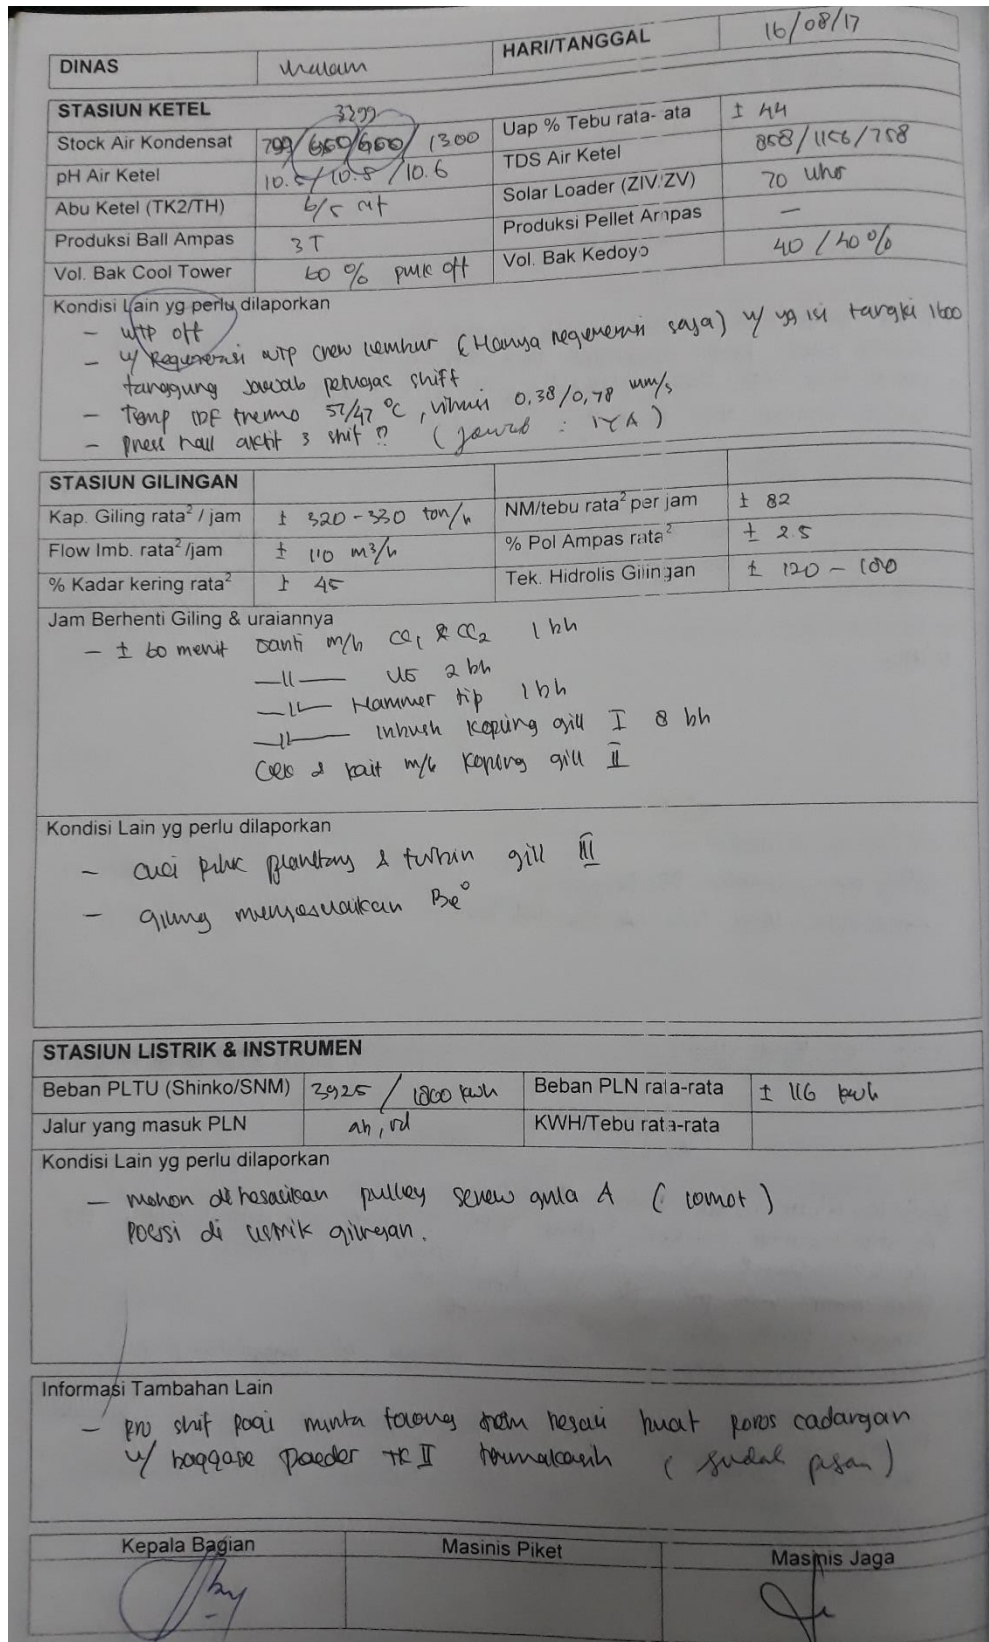 DINAS malam HARI/TANGGAL 16/08/17
STASIUN KETEL 3299
Stock Air Kondensat 799/650/600/1300 Uap % Tebu rata- ata ± 44
pH Air Ketel 10.5/10.8/10.6 TDS Air Ketel 858/1156/758
Abu Ketel (TK2/TH) 6/5 Solar Loader (ZIV/ZV) 70
Produksi Ball Ampas 3 T Produksi Pellet Ampas —
Vol. Bak Cool Tower 60 % off Vol. Bak Kedoyo 40 / 40 %
Kondisi Lain yg perlu dilaporkan
- WTP off
- u/ Regenerasi WTP crew lembur (Hanya regenerasi saja) u/ yg isi tangki 1600
tanggung jawab petugas shift
- Temp IDF 57/47 °C, vibrasi 0,38/0,78 mm/s
- press ball aktif 3 shif ? (jawab : IYA)
STASIUN GILINGAN
Kap. Giling rata² / jam ± 320 - 330 ton/h NM/tebu rata² per jam ± 82
Flow Imb. rata² /jam ± 110 m³/h % Pol Ampas rata² ± 2.5
% Kadar kering rata² ± 45 Tek. Hidrolis Gilingan ± 120 -
Jam Berhenti Giling & uraiannya
- ± 60 menit Ganti m/b CC1 & CC2 1 bh
—||— 2 bh
—||— Hammer tip 1 bh
—||— Inbush kopling gill I 8 bh
Cek & kait m/b gill II
Kondisi Lain yg perlu dilaporkan
- cuci planetary & turbin gill III
- giling menyesuaikan Be°
STASIUN LISTRIK & INSTRUMEN
Beban PLTU (Shinko/SNM) 3925 / 1800 kwh Beban PLN rata-rata ± 116 kwh
Jalur yang masuk PLN KWH/Tebu rata-rata
Kondisi Lain yg perlu dilaporkan
- mohon pulley screw gula A
Posisi di listrik gilingan.
Informasi Tambahan Lain
- pro shif pagi minta tolong besali buat poros cadangan
u/ baggase TK II terimakasih ( sudah pesan )
Kepala Bagian Masinis Piket Masinis Jaga